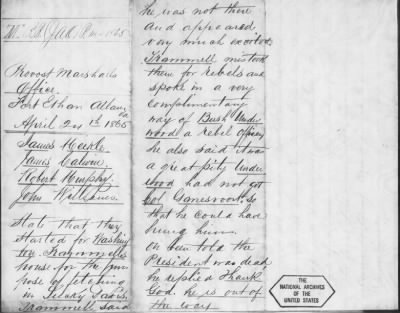 Provost Marshalls
Office.
Fort Ethan Allen
April 24th 1865
James
James
Robert Murphy
John Williams.
State that they
started for
house for the pur
pose of fetching
in
Trammell said
he was not there
and appeared
very much excited.
Trammell mistook
them for rebels and
spoke in a very
complimentary
way of Bush Under
wood a rebel officer
he also said it was
a great pity Under
wood had not got
Col. Gansevoort, so
that he could have
hung him.
on being told the
President was dead
he replied Thank
God. he is out of
the way
THE
NATIONAL ARCHIVES
OF THE
UNITED STATES